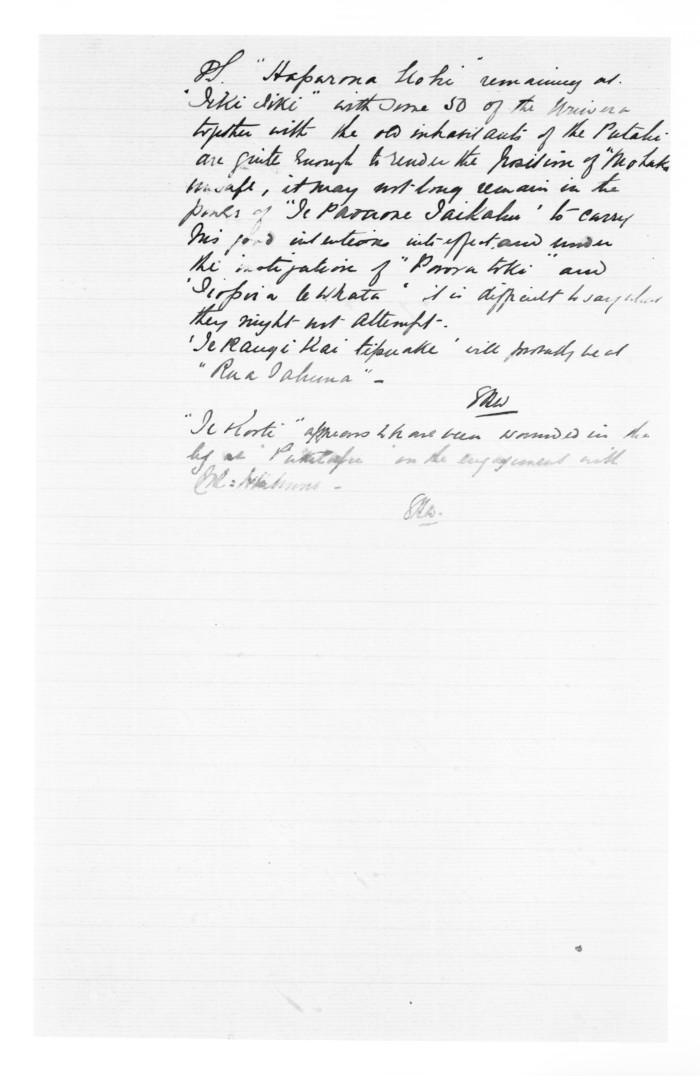 PS. "Haparona Kohi" remaining at
"Tiki Tiki" with some 50 of the Urivera
together with the old inhabitants of the Putahi
are quite enough to render the position of "Mohaka
unsafe, it may not long remain in the
power of "Te Paerone Taikahu" to carry
his good intentions into effect, and under
the instigation of "Porora toki" and
"Te Whata" it is difficult to say what
they might not attempt.
"Te Rangi Kai tipuake" will probably be at
"Rua Tahuna" -
"Te Korti" appears to have been wounded in the
leg at in the engagement with
Col: Whitmore -